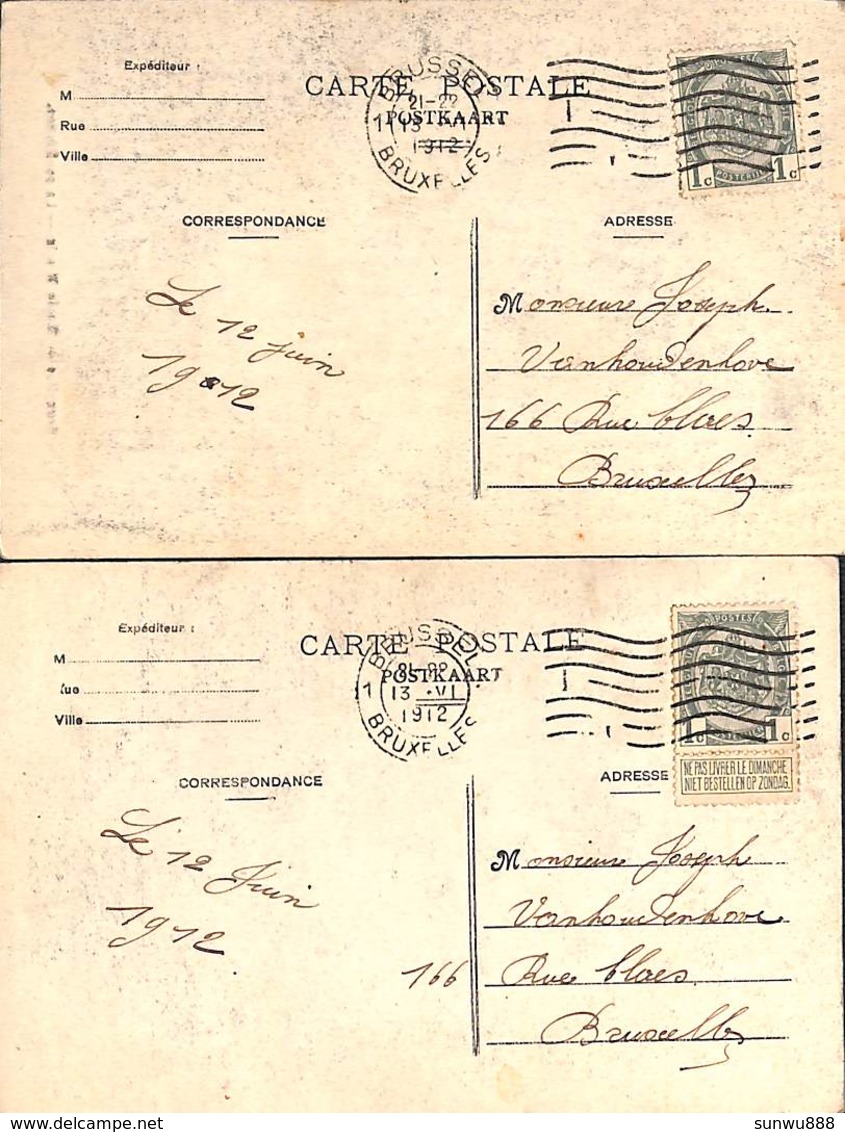 Expéditeur :
M
Rue
Ville
CARTE POSTALE
POSTKAART
BRUSSEL
21-22
1912
BRUXELLES
POSTERIJEN
1c 1c
CORRESPONDANCE
ADRESSE
Le 12 juin
1912
Monsieur Joseph
Vanhoudenhove
166 Rue blaes
Bruxelles
Expéditeur :
M
Rue
Ville
CARTE POSTALE
POSTKAART
BRUSSEL
21-22
1 13 VI
1912
BRUXELLES
POSTES
1c 1c
NE PAS LIVRER LE DIMANCHE
NIET BESTELLEN OP ZONDAG.
CORRESPONDANCE
ADRESSE
Le 12 Juin
1912
Monsieur Joseph
Vanhoudenhove
166 Rue blaes
Bruxelles
sunwu888